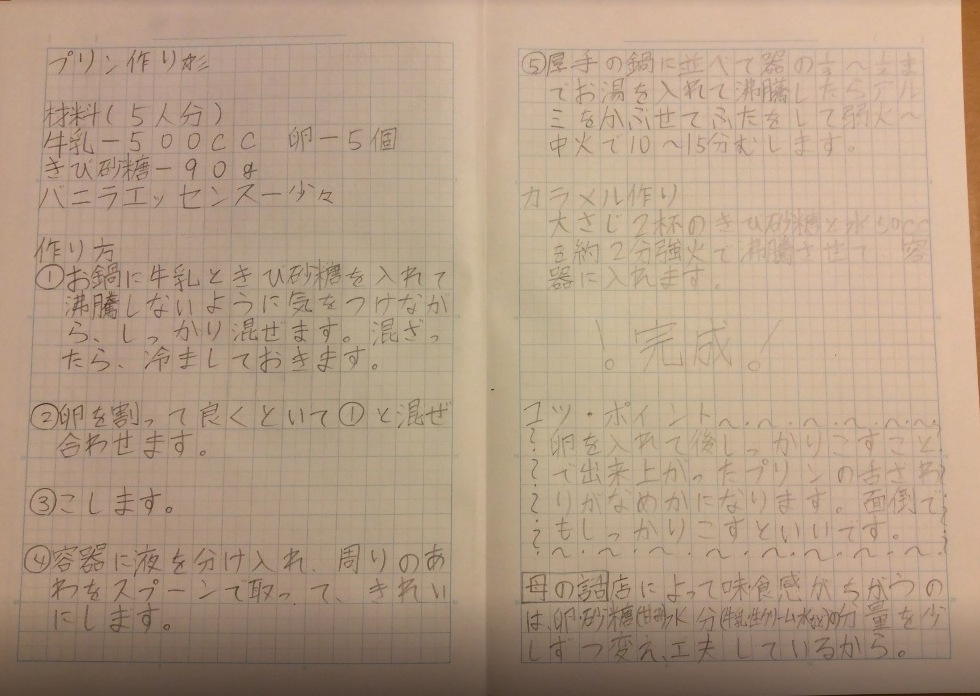 プリン作り形
材料(5人分)
牛乳ー500cc 卵ー5個
きび砂糖ー90g
バニラエッセンスー少々
作り方
①お鍋に牛乳ときび砂糖を入れて
沸騰しないように気をつけなが
ら、しっかり混ぜます。混ざっ
たら、冷ましておきます。
②卵を割って良くといて①と混ぜ
合わせます。
③こします。
④容器に液を分け入れ、周りのあ
わをスプーンで取って、きれい
にします。
⑤厚手の鍋に並べて器の1/3〜1/2ま
でお湯を入れて沸騰したらアル
ミをかぶせてふたをして弱火〜
中火で10〜15分むします。
カラメル作り
大さじ2杯のきび砂糖と水50cc
を約2分強火で沸騰させて、容
器に入れます。
!完成!
コツ・ポイント〜・〜・〜・〜・〜・
卵を入れて後しっかりこすこと
で出来上がったプリンの舌ざわ
りがなめかになります。面倒で
もしっかりこすといいです。
〜・〜・〜・〜・〜・〜・〜・〜・
母の話店によって味・食感がちがうの
は、卵・砂糖(甘み)・水分(牛乳・生クリーム・水など)の分量を少
しずつ変え、工夫しているから。